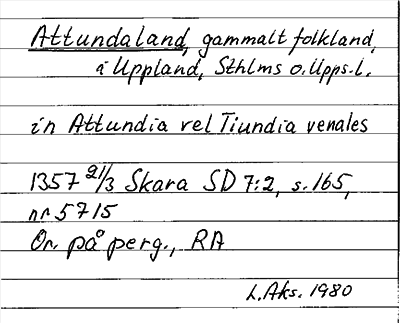 Attundaland, gammalt folkland,
i Uppland, Sthlms o. Upps. l.
in Attundia vel Tiundia venales
1357 21/3 Skara SD 7:2, s. 165,
nr 5715
Or. på perg., RA
L. Aks. 1980